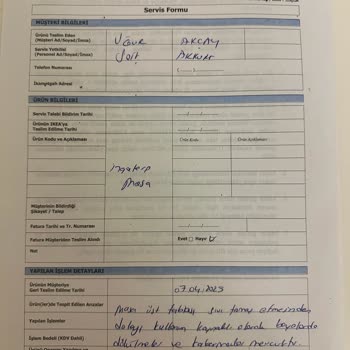 Servis Formu
MÜŞTERİ BİLGİLERİ
Ürünü Teslim Eden
(Müşteri Ad/Soyad/İmza)
Uğur AKÇAY
Servis Yetkilisi
(Personel Ad/Soyad/İmza)
AKKURT
Telefon Numarası
(....)
İkametgah Adresi
ÜRÜN BİLGİLERİ
Servis Talebi Bildirim Tarihi
..../..../......
Ürünün IKEA'ya
Teslim Edilme Tarihi
..../..../......
Ürün Kodu ve Açıklaması
Ürün Kodu:
Ürün Açıklaması:
Masa
Müşterinin Bildirdiği
Şikayet / Talep
Fatura Tarihi ve Tr. Numarası
..../..../......
Fatura Müşteriden Teslim Alındı
Evet Hayır
Not
YAPILAN İŞLEM DETAYLARI
Ürünün Müşteriye
Geri Teslim Edilme Tarihi
07.04.2023
Ürün(ler)de Tespit Edilen Arızalar
masa üst tablası sıvı temas etmesinden
Yapılan İşlemler
dolayı kullanım kaynaklı olarak boyalarda
İşlem Bedeli (KDV Dahil)
dökülmeler ve kabarmalar mevcuttur.